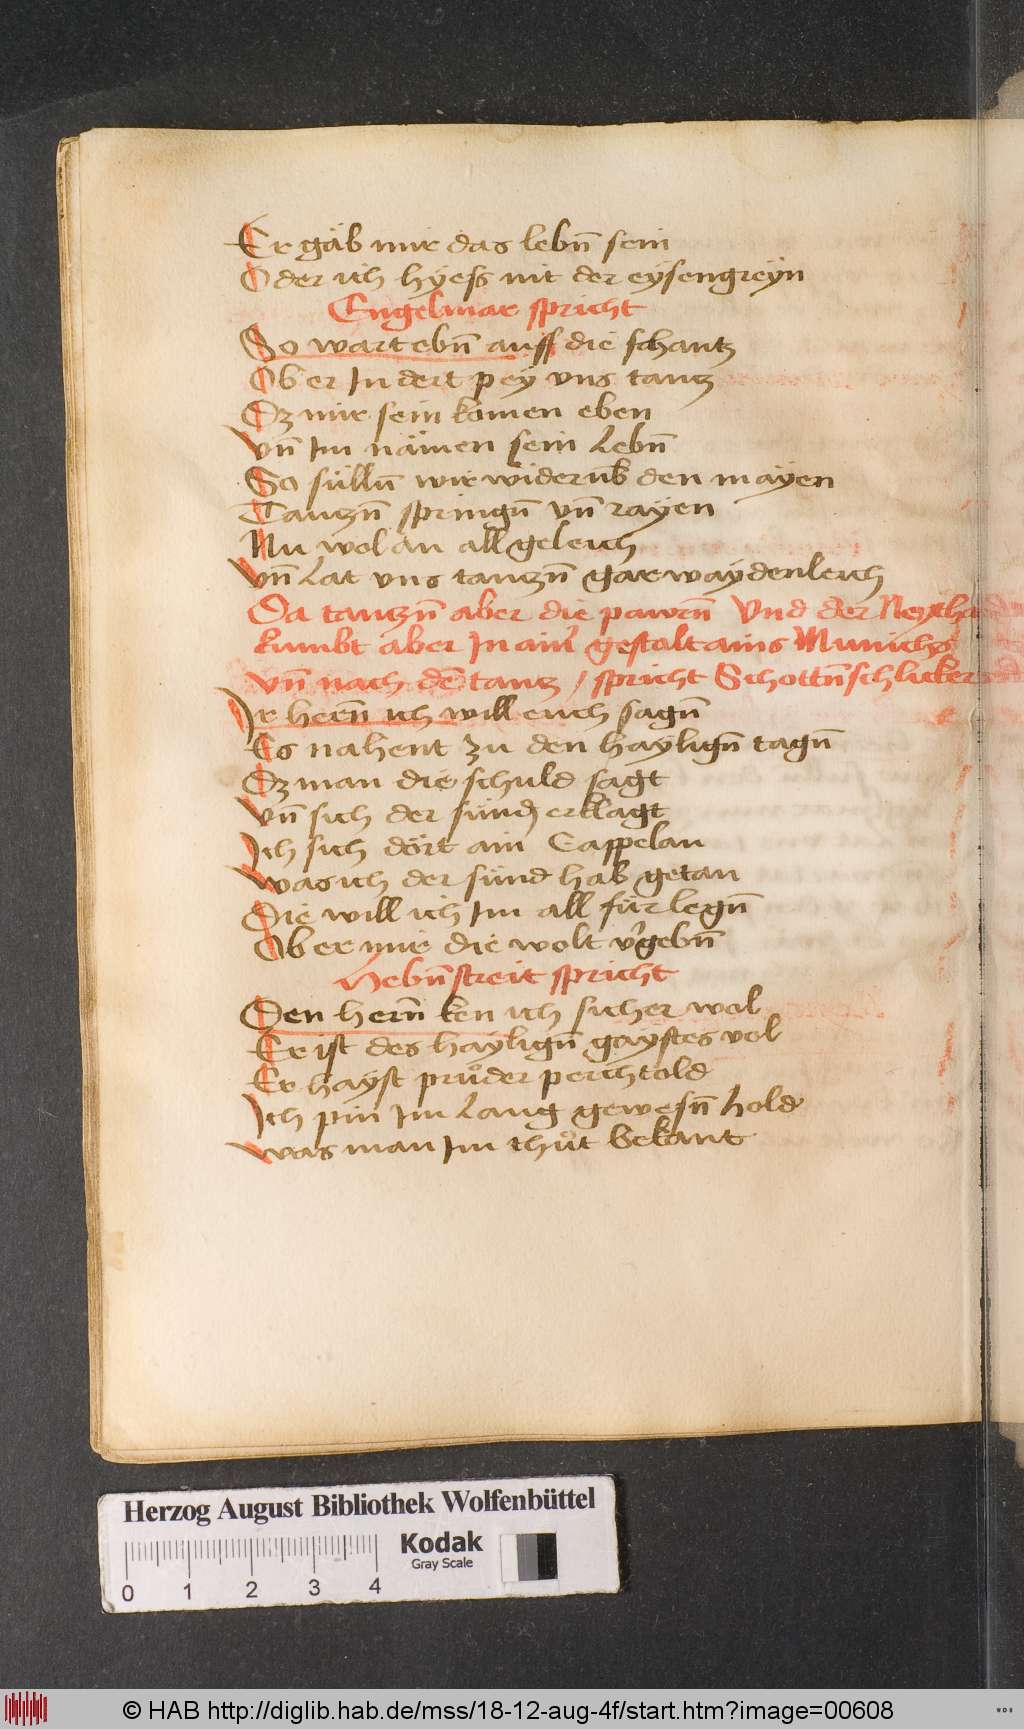 Er gäb mir das lebn̄ sein
Oder ich hyess nit der eysengreÿn
Engelmar spricht
So wart ebn̄ auff die schantz
Ob er Indert peÿ vns tantz
Dz mir sein komen eben
vn̄ Im nämen sein Lebn̄
So sülln̄ wir widerub̄ den maÿen
Tantzn̄ springn̄ vn̄ raÿen
Nu wol an all geleich
vn̄ Lat vns tantzn̄ gar waÿdenleich
Da tantzn̄ aber die pawrn̄ Vnd der
kumbt aber In ain̄ gestalt ains Munichs
vn̄ nach dē tantz / spricht Schottn̄schlicker
Ir hern̄ ich will euch sagn̄
Es nahent zu den haÿlign̄ tagn̄
Dz man die schuld sagt
vn̄ sich der sünd erklagt
Ich sich dört ain Cappelan
was ich der sünd hab getan
Die will ich Im all für legn̄
Ob er mir die wolt v̄gebn̄
Hebn̄streit spricht
Den hern̄ ken ich sicher wol
Er ist des haÿlign̄ gaystes vol
Er hayst průder perichtold
Ich pin Im Lang gewesn̄ hold
was man Im thůt bekant
Herzog August Bibliothek Wolfenbüttel
Kodak
Gray Scale
0 1 2 3 4
© HAB http://diglib.hab.de/mss/18-12-aug-4f/start.htm?image=00608